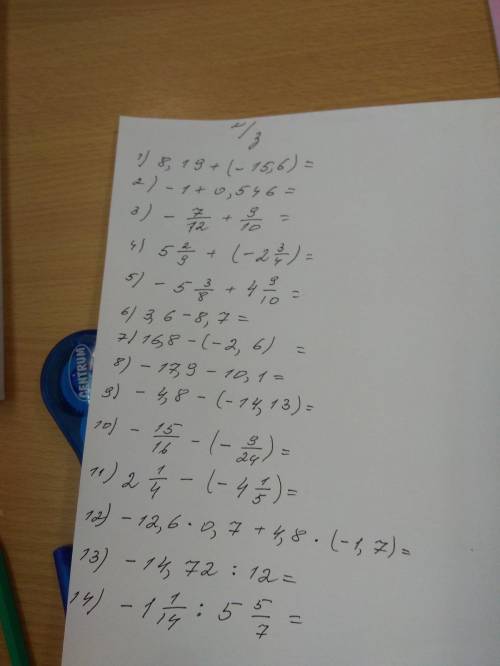 1) 8,19+(-15,6)=
2) -1+0,546=
3) - 7/12 + 9/10 =
4) 5 2/9 + (-2 3/4)=
5) -5 3/8 + 4 9/10 =
6) 3,6-8,7=
7) 16,8-(-2,6) =
8) -17,9-10,1=
9) -4,8-(-14,13)=
10) - 15/16 - (- 9/24)=
11) 2 1/4 - (-4 1/5)=
12) -12,6·0,7+4,8·(-1,7)=
13) -14,72:12=
14) -1 1/14 : 5 5/7 =
CENTRUM